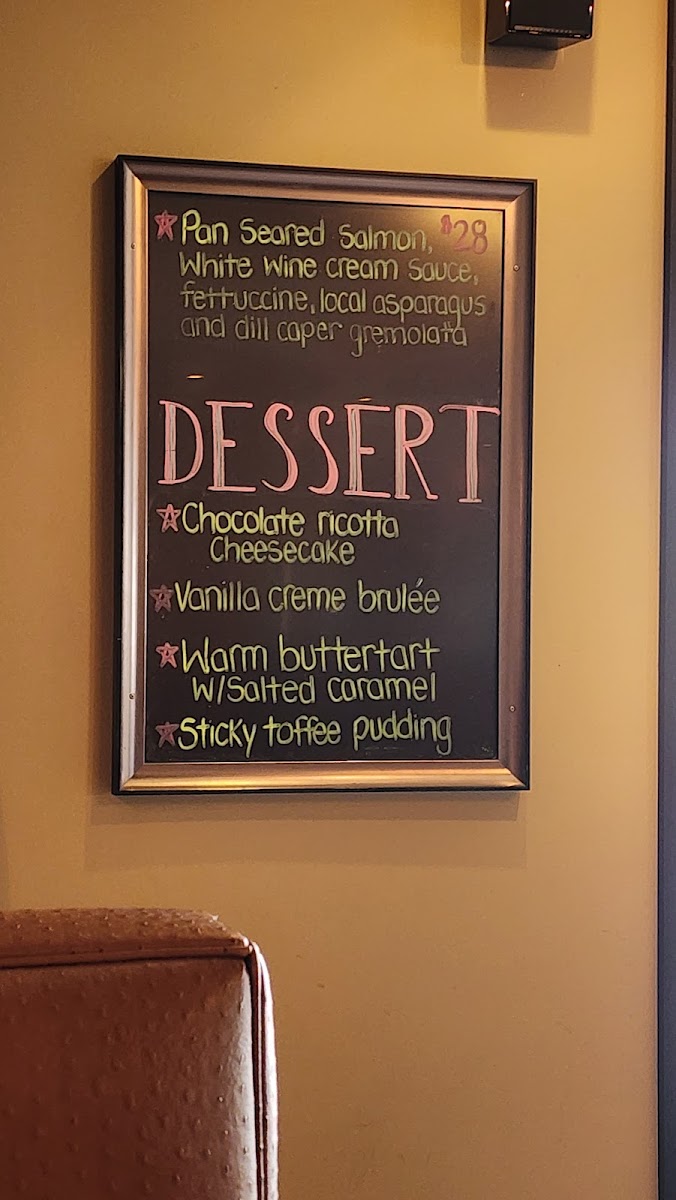 Pan Seared Salmon, $28
White Wine cream Sauce,
fettuccine, local asparagus
and dill caper gremolata
DESSERT
Chocolate ricotta
Cheesecake
Vanilla creme brulée
Warm buttertart
W/Salted Caramel
Sticky toffee pudding